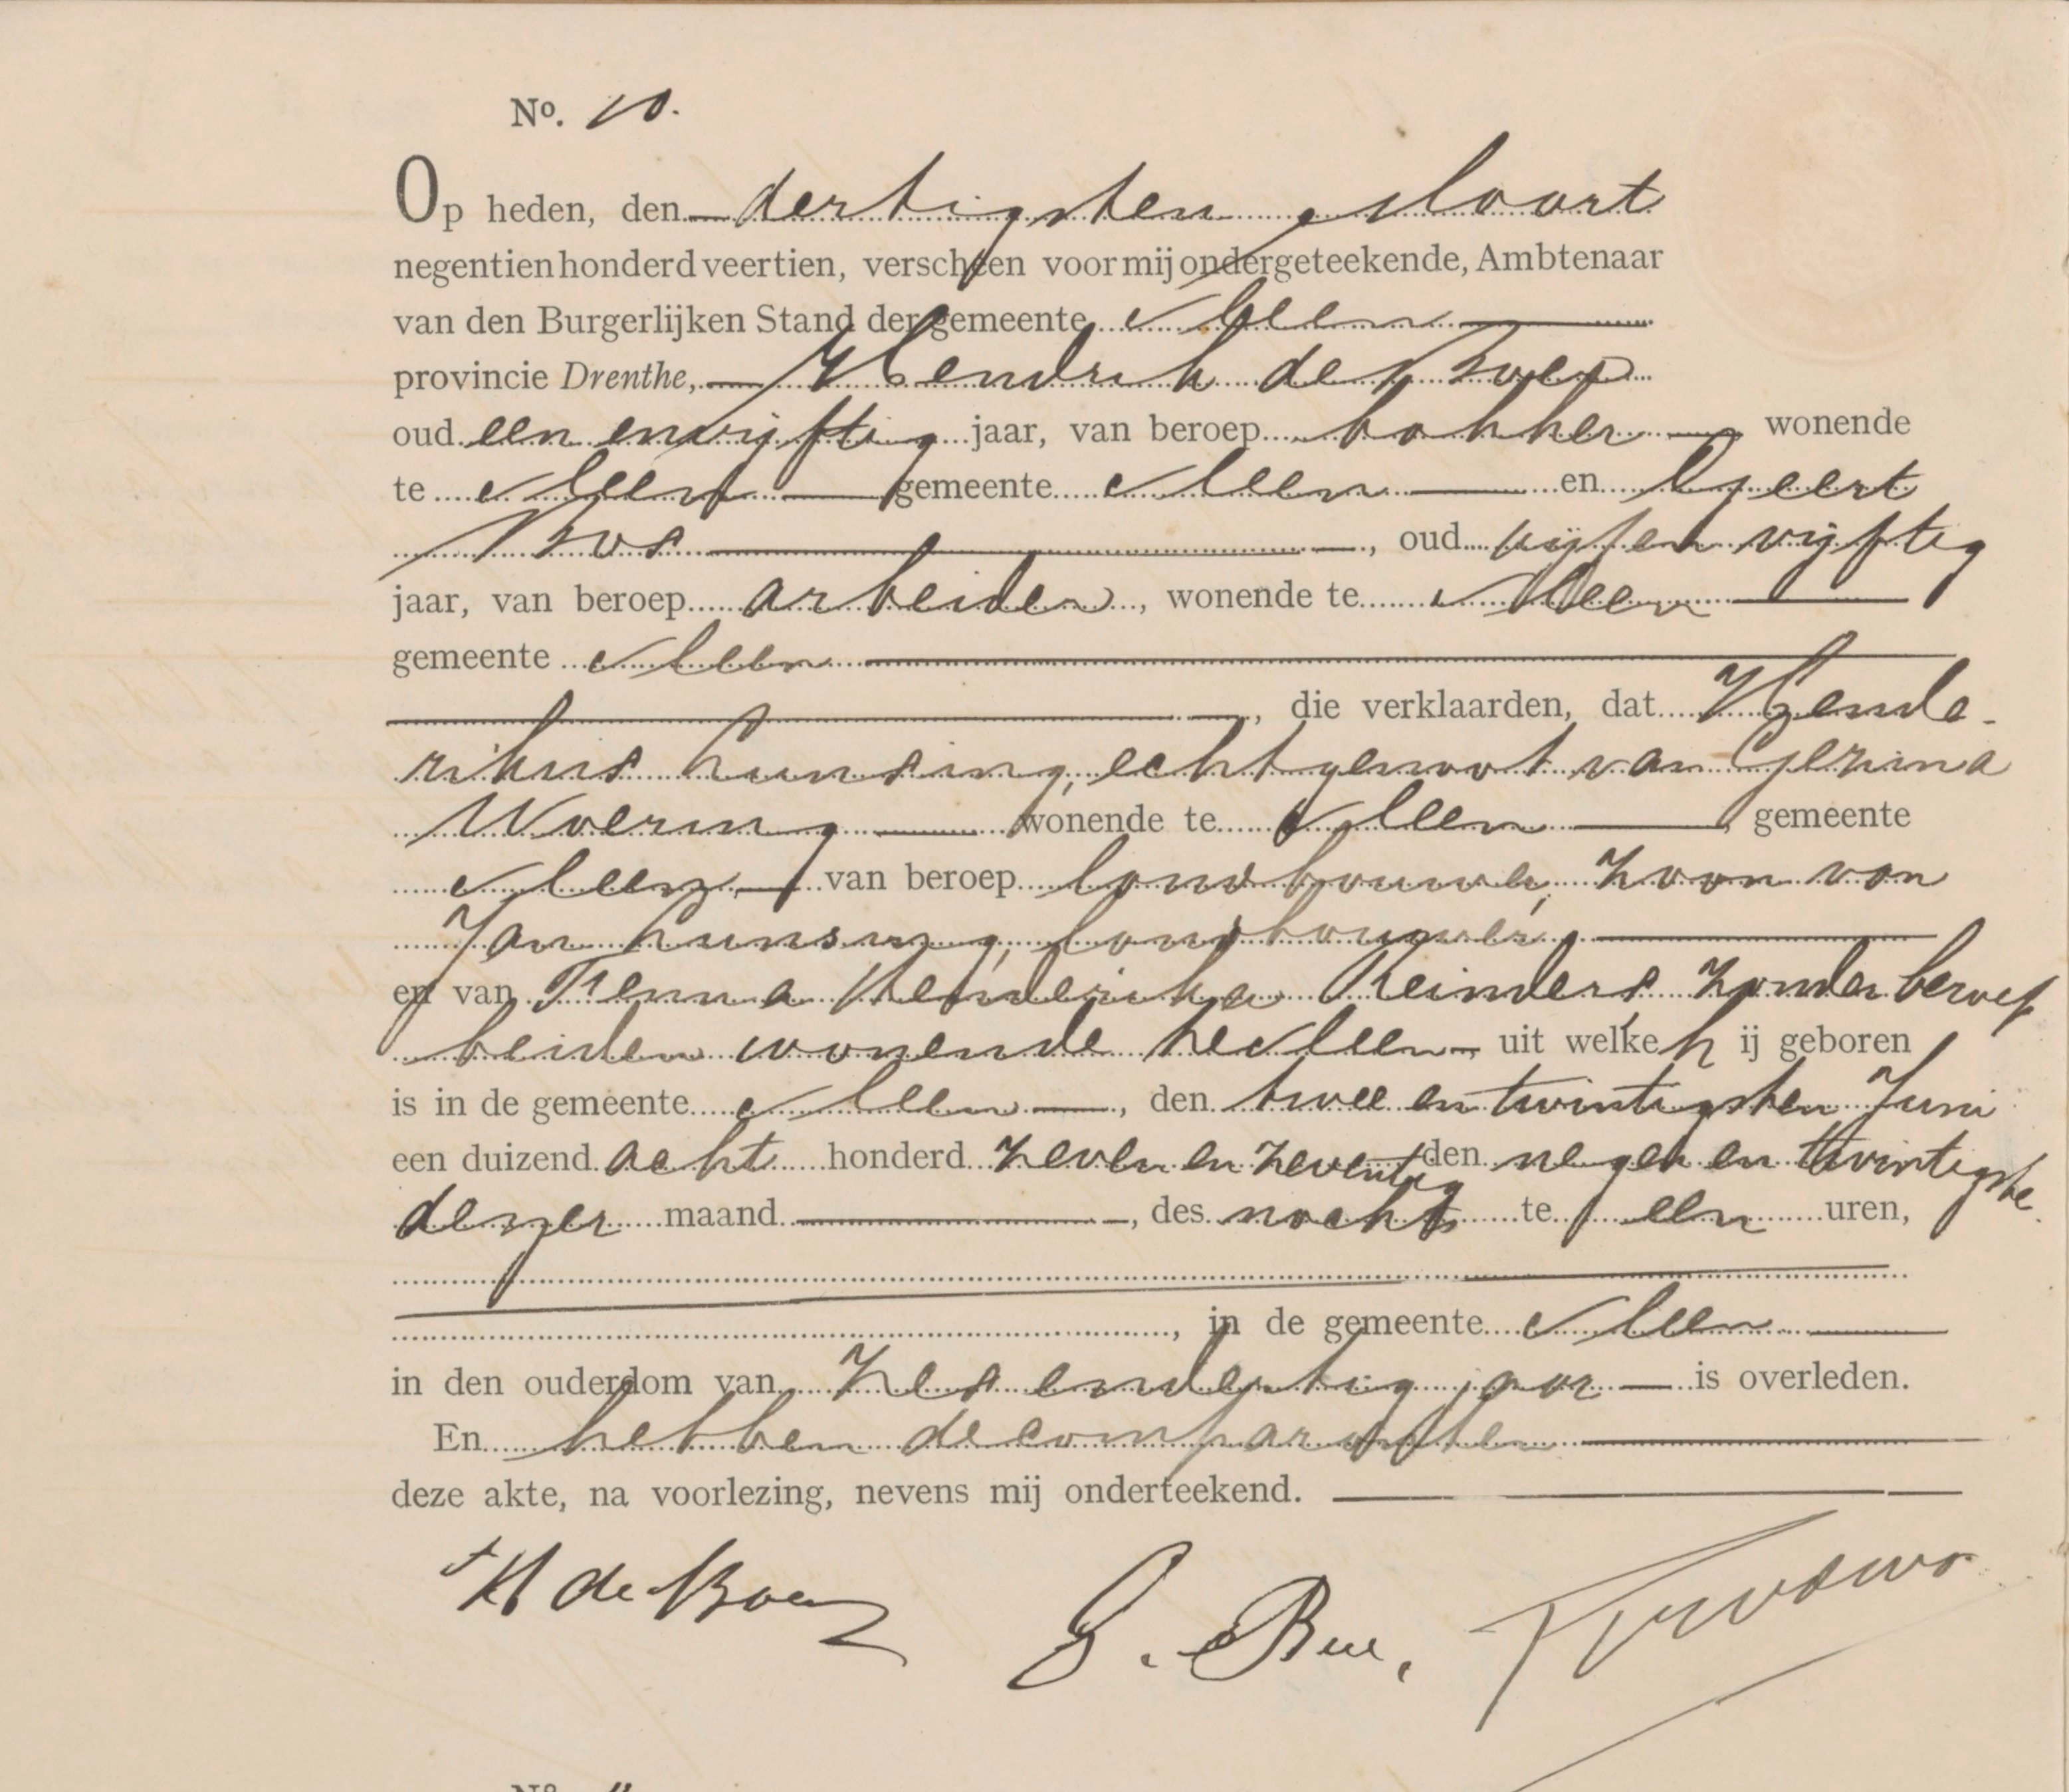 No. 10.
Op heden, den dertigsten Maart
negentienhonderdveertien, verscheen voor mij ondergeteekende, Ambtenaar
van den Burgerlijken Stand der gemeente Sleen
provincie Drenthe, Hendrik de Boer
oud een en vijftig jaar, van beroep bakker wonende
te Sleen gemeente Sleen en Geert
Bos, oud vijf en vijftig
jaar, van beroep arbeider, wonende te Sleen
gemeente Sleen
, die verklaarden, dat Hende-
rikus Lunsing, echtgenoot van Gezina
Woering wonende te Sleen, gemeente
Sleen, van beroep landbouwer, zoon van
Jan Lunsing, landbouwer
en van Henderika Reinders, zonder beroep
beiden wonende te Sleen, uit welke hij geboren
is in de gemeente Sleen, den twee en twintigsten Juni
een duizend acht honderd zeven en zeventig den negen en twintigste
dezer maand, des nachts te een uren,
, in de gemeente Sleen
in den ouderdom van zes en dertig jaar is overleden.
En hebben de comparanten
deze akte, na voorlezing, nevens mij onderteekend.
H de Boer
G. Bos.
No